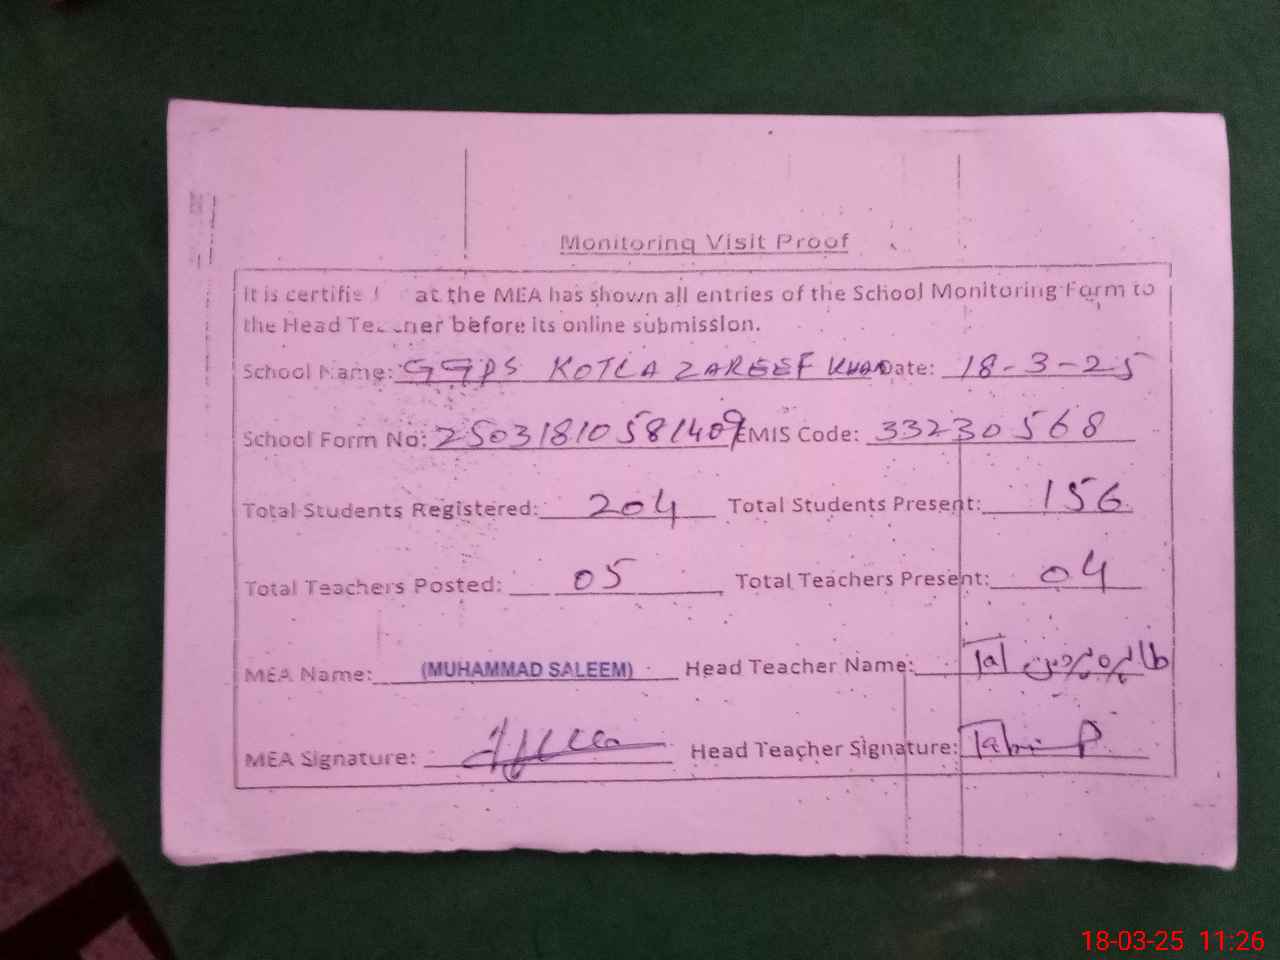 Monitoring Visit Proof
It is certifie at the MEA has shown all entries of the School Monitoring Form to
the Head Teacher before its online submission.
School Name: GGPS KOTLA ZAREEF KHAN Date: 18-3-25
School Form No: 25031810581409 EMIS Code: 33230568
Total Students Registered: 204 Total Students Present: 156
Total Teachers Posted: 05 Total Teachers Present: 04
MEA Name: (MUHAMMAD SALEEM) Head Teacher Name:
MEA Signature: Head Teacher Signature:
18-03-25 11:26